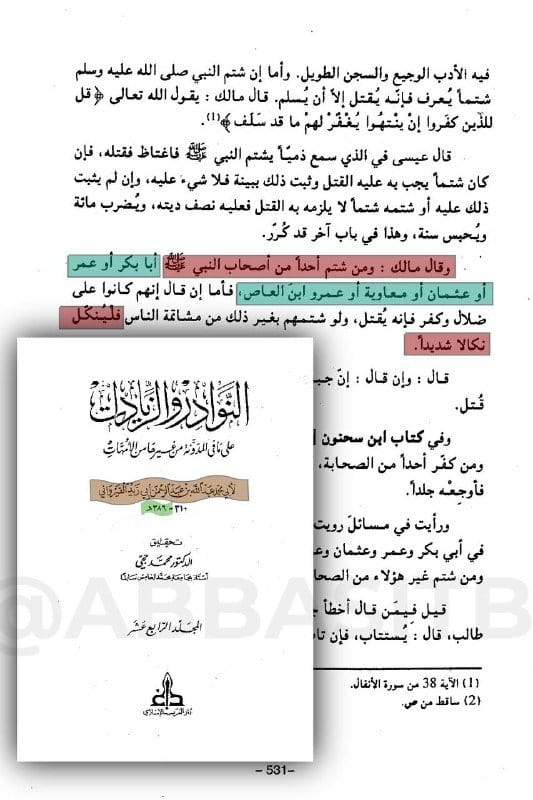 فيه الأدب الوجيع والسجن الطويل. وأما إن شتم النبي صلى الله عليه وسلم
شتماً يُعرف فإنّه يُقتل إلاّ أن يُسلم. قال مالك : يقول الله تعالى ﴿قل
للذين كفَروا إنْ ينْتهُوا يُغْفَرْ لهمْ ما قد سَلَف﴾(1).
قال عيسى في الذي سمع ذميّاً يشتم النبي ﷺ فاغتاظ فقتله، فإن
كان شتماً يجب به عليه القتل وثبت ذلك ببينة فلا شيء عليه، وإن لم يثبت
ذلك عليه أو شتمه شتماً لا يلزمه به القتل فعليه نصف ديته، ويُضرب مائة
ويُحبس سنة، وهذا في باب آخر قد كُرّر.
وقال مالك : ومن شتم أحداً من أصحاب النبي ﷺ أبا بكر أو عمر
أو عثمان أو معاوية أو عمرو ابن العاص، فأما إن قال إنهم كانوا على
ضلال وكفر فإنه يُقتل، ولو شتمهم بغير ذلك من مشاتمة الناس فلْيُنكّل
نكالا شديداً.
قال : وإن قال : إنّ
قُتل.
وفي كتاب ابن سحنون
ومن كفّر أحداً من الصحابة،
فأوجِعْه جلداً.
ورأيت في مسائل رويت
في أبي بكر وعمر وعثمان
ومن شتم غير هؤلاء من
قيل فيمَن قال أخطأ
طالب، قال : يُستتاب، فإن
النّوادر والزّيادات
على ما في المدوّنة من غيرها من الأمّهات
لأبي محمد عبد الله بن عبد الرحمن أبي زيد القيرواني
310 - 386هـ
تحقيق
الدكتور محمد حجي
المجلد الرابع عشر
دار الغرب الإسلامي
(1) الآية 38 من سورة الأنفال.
(2) ساقط من ص.
- 531 -
@ABBASITB